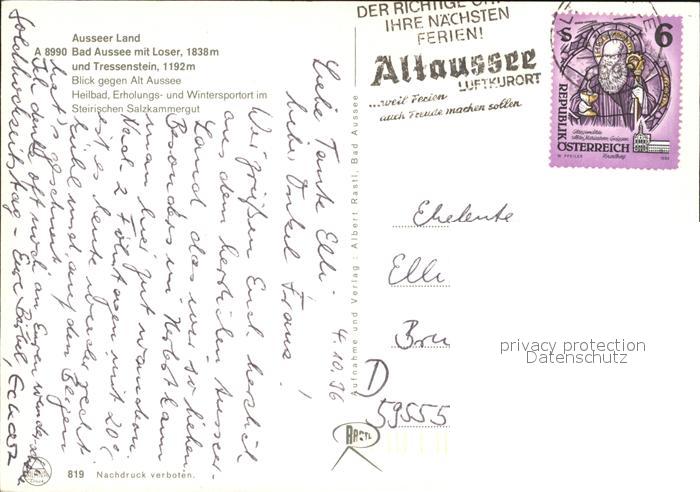 Ausseer Land
A 8990 Bad Aussee mit Loser, 1838m
und Tressenstein, 1192m
Blick gegen Alt Aussee
Heilbad, Erholungs- und Wintersportort im
Steirischen Salzkammergut
4.10.96
Liebe Tante Elli
lieber Onkel Franz!
Wir grüßen Euch herzlich
aus dem herrlichen Ausseer-
Land, das wir so lieben.
Besonders im Herbst kann
man hier gut wandern.
Nach 2 Föhntagen mit 20°
ist es heute wieder recht
kühl und auf den Bergen
hat's geschneit.
Ich denke oft noch an Euren wunderschönen
Goldhochzeitstag - Eure Bärbel, Eckatz
Aufnahme und Verlag: Albert Rastl, Bad Aussee
819 Nachdruck verboten.
RASTL
DER RICHTIGE ORT
IHRE NÄCHSTEN
FERIEN!
Altaussee
LUFTKURORT
...weil Ferien
auch Freude machen sollen
S 6
REPUBLIK
ÖSTERREICH
Glasgemälde
W. PFEILER
Vorarlberg
Eheleute
Elli
Bru
D
59555
privacy protection
Datenschutz